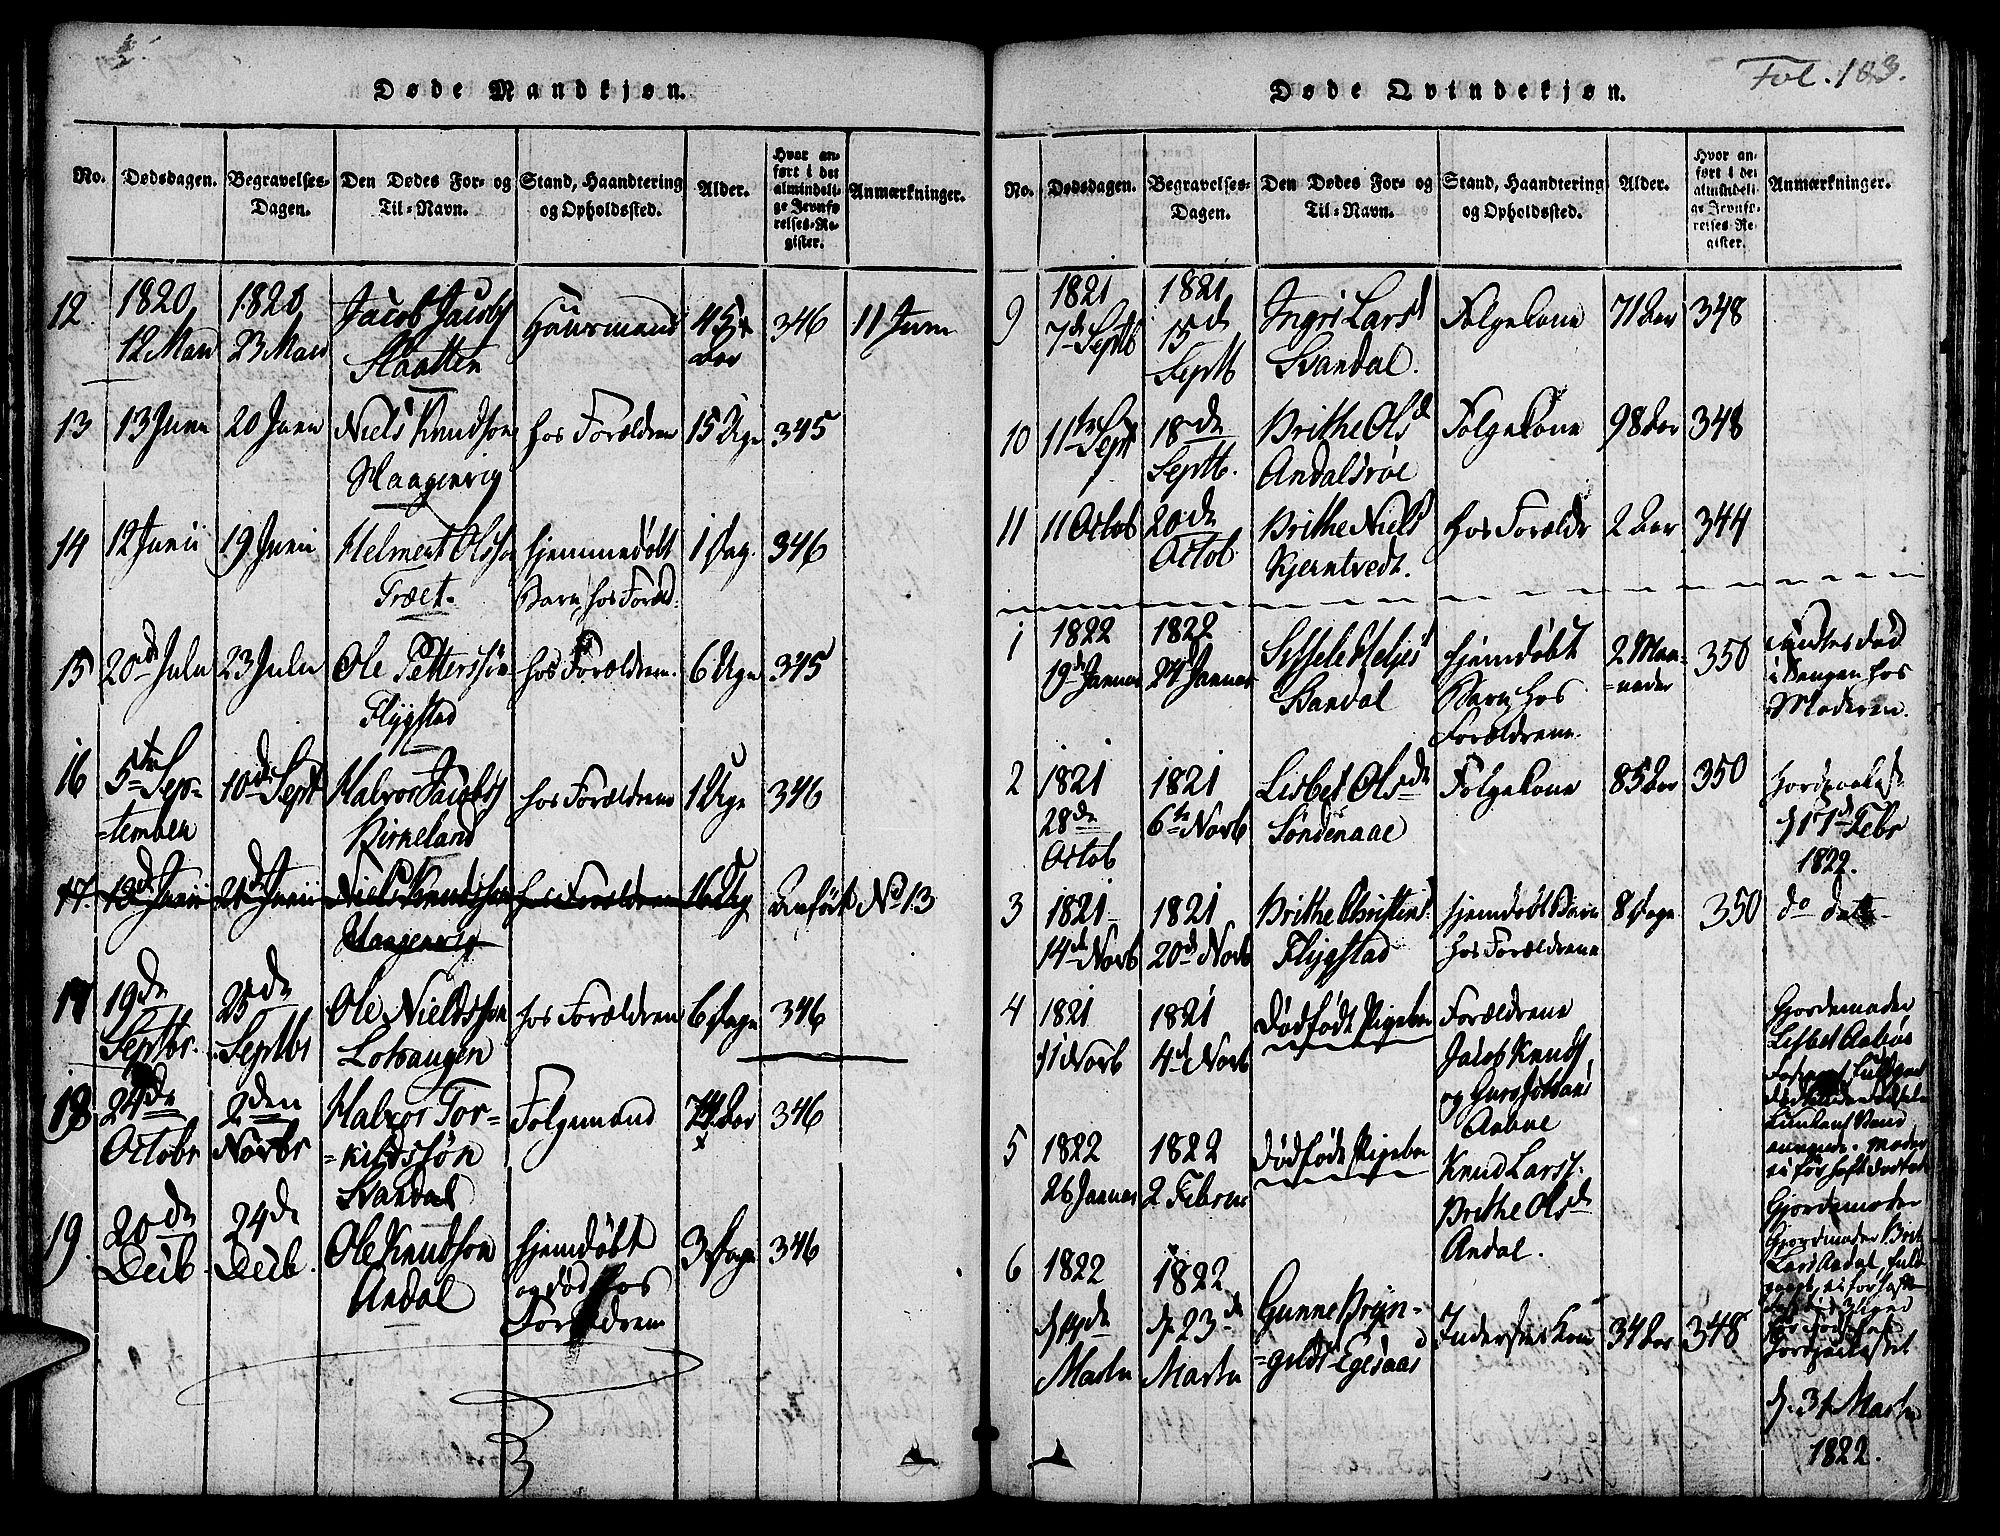 Døde Mandkjøn.
No. Dødsdagen. Begravelses-Dagen. Den Dødes For- og Til-Navn. Stand, Haandtering og Opholdssted. Alder. Hvor anført i det almindelige Jevnførelses-Register. Anmærkninger.
12 1820 12 Marti 1820 23 Marti Jacob Jacobs Slaatten Huusmand 45 Aar 346 11 Juni
13 13 Junii 20 Junii Niels Knudsøn Haagenvig hos Forældrene 15 Uger 345
14 12 Junii 19 Junii Helment Olssøn Træet. hjemmedøbt Barn hos Foræld. 1 Dag. 346
15 20de Julii 23 Julii Ole Petterssøn Flygstad hos Forældrene 6 Uger 345
16 5te September 10de Sept Halvor Jacobs Birkeland hos Forældrene 1 Uge 346
17 18de Junii 21de Junii Niels Knudssøn Haagenvig hos Forældrene 16 Uger Anført No 13
17 19de Septbr. 25de Septbr Ole Nieldssøn Lovangen hos Forældrene 6 Dage 346
18 24de Octobr 2den Novbr Halvor Tor=kildssøn Svandal Følgemand 74 Aar 346
19. 20de Decb. 24de Decb. Ole Knudsøn Andal hjemdøbt og død hos Forældrene 3 Dage 346
Fol. 183.
Døde Qvindekjøn.
No. Dødsdagen. Begravelses-Dagen. Den Dødes For- og Til-Navn. Stand, Haandtering og Opholdssted. Alder. Hvor anført i det almindelige Jevnførelses-Register. Anmærkninger.
9 1821 7de Septb 1821 15de Septb Ingri Larsd Svandal. Følgekone 71 Aar 348
10 11te Sept 18de Septb. Brithe Olsd Andalsrøe Følgekone 98 Aar 348
11 11 Octob 20de Octob Brithe Niels Kjerntvedt. hos Forældr 2 Aar 344
1 1822 19de Januar 1822 24de Januar Sissele Heljes Svandal hjemdøbt Barn hos Forældrene. 2 Maa=neder 350 fundes død i Sengen hos Moderen.
2 1821 28de Octob 1821 6te Novb Lisbet Olsdr Søndenaae Følgekone 85 Aar 350 Jordpaakast d 1de Febr 1822.
3 1821 14de Novb 1821 20de Novb Brithe Christens. Flygstad hjemdøbt Barn hos Forældrene 8 Dage 350 do dato
4 1821 11 Novb 1821 4de Novb Dødfødt Pigebn Forældrene Jacob Knuds og Guro Johans Aabøe Gjordemoder Lisbet Aabøe
5 1822 26 Januar 1822 2 Februar Dødfødt Pigebn Knud Larss. Brithe Olsd Andal. Gjordemoder Gjordmoder Brit Lars Andal,
6 1822 d 14de Martii 1822 d. 23de Martii Gunne Bryn=gelds Egesaas Inderstes Kone 34 Aar 348 Jordpaakastet d. 31 Martii 1822.